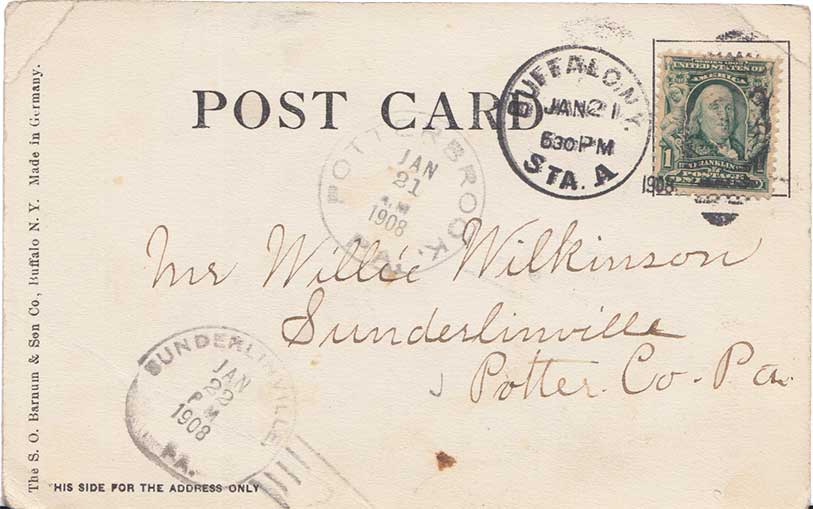 POST CARD
BUFFALO N.Y.
JAN 21
630 PM
STA. A
1908
UNITED STATES OF
AMERICA
1
FRANKLIN
POSTAGE
POTTERBROOK.
JAN
21
1908
PA.
Mr Willie Wilkinson
Sunderlinville
Potter. Co. Pa.
SUNDERLINVILLE
JAN
22
P M
1908
PA.
HIS SIDE FOR THE ADDRESS ONLY
The S. O. Barnum & Son Co., Buffalo N. Y. Made in Germany.